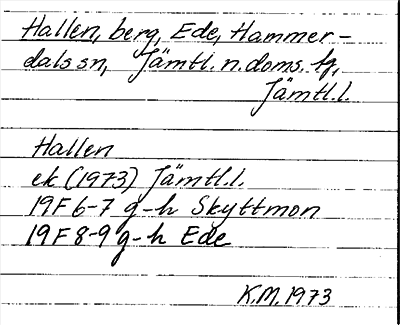 Hallen, berg, Ede, Hammer-
dals sn, Jämtl. n. doms. tg,
Jämtl.l.
Hallen
ek (1973) Jämtl.l.
19F 6-7 g-h Skyttmon
19F 8-9 g-h Ede
K.M. 1973